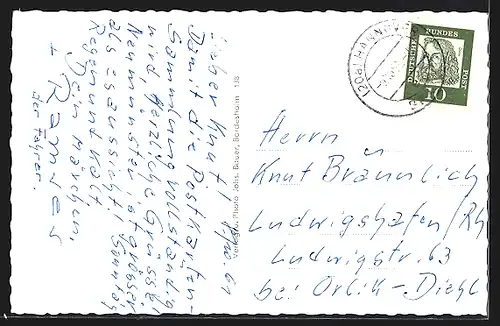 Lieber Knut!
Damit die Postkarten-
Sammlung vollständig
wird, herzliche Grüsse!
Neumünster ist grösser
als es aussieht! Sonntag
Regen und kalt.
Dein
+ Ramses
der Fahrer.
Verlag u. Photo Johs. Bauer, Bordesholm 138
(20a) HANNOVER
DEUTSCHE BUNDESPOST
10
Herrn
Knut Bräunlich
Ludwigshafen/Rh
Ludwigstr. 63
bei Orlik-Diehl